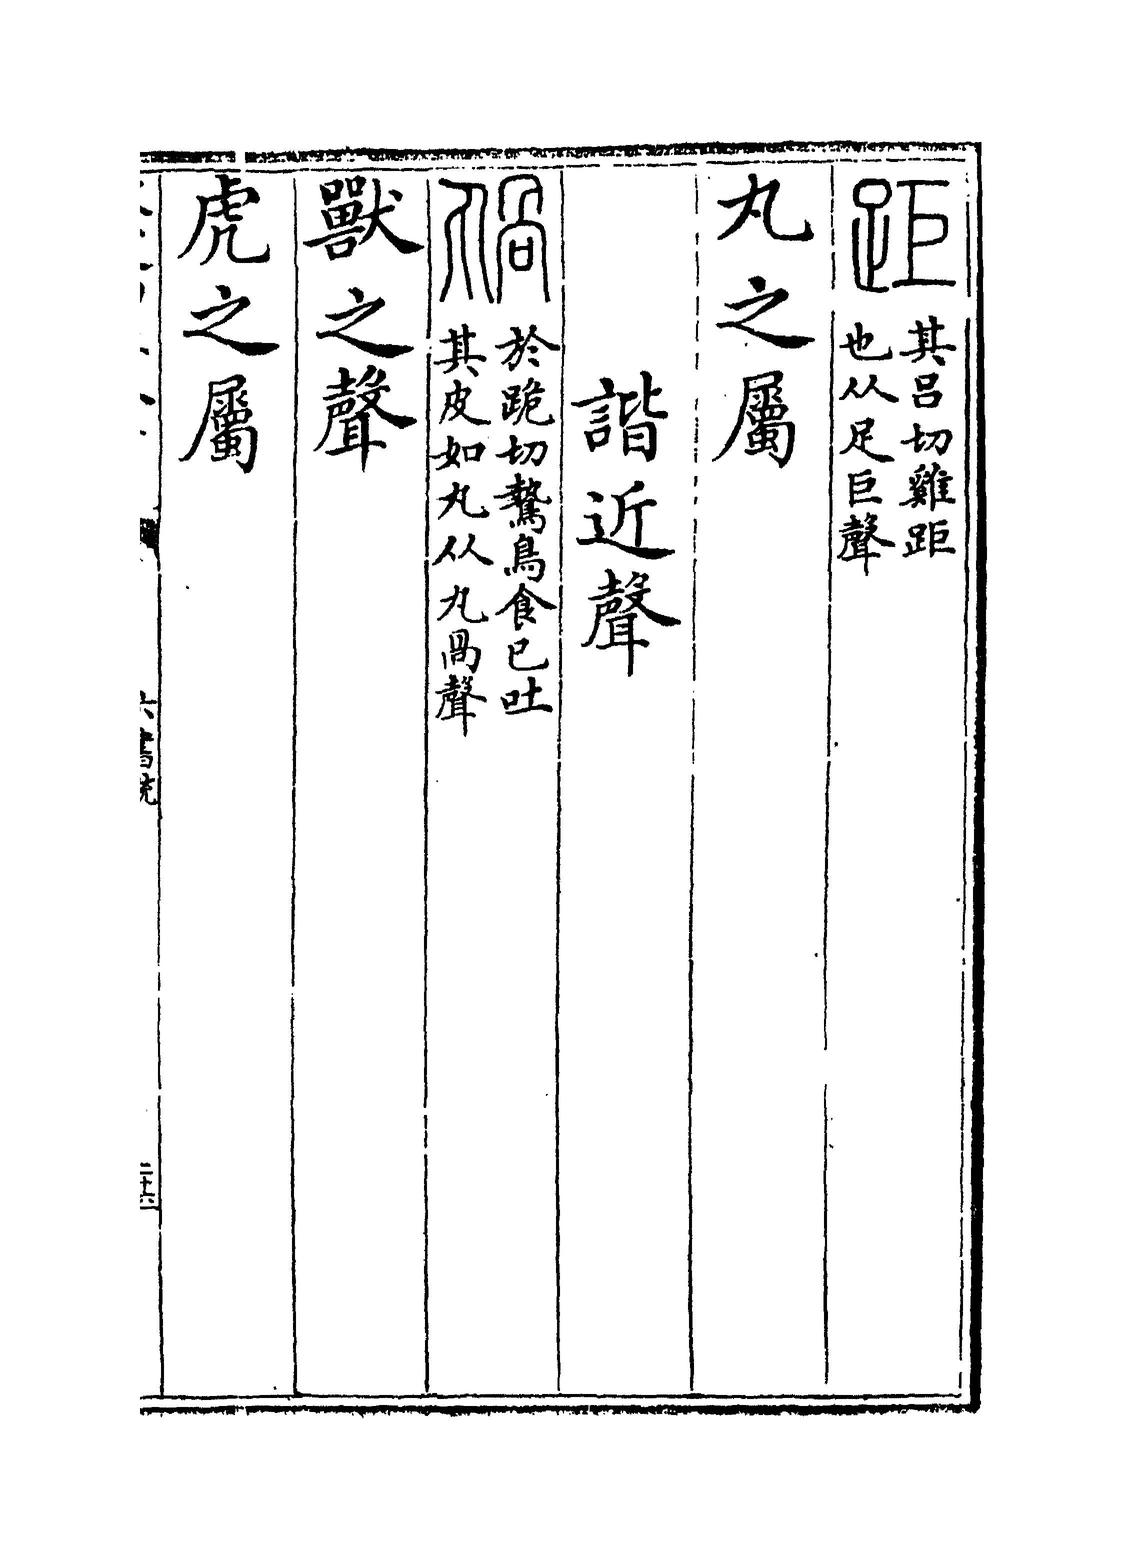 距 其呂切雞距
也从足巨聲
丸之屬
諧近聲
於跪切鷙鳥食已吐
其皮如丸从丸咼聲
獸之聲
虎之屬
六書統
二十六